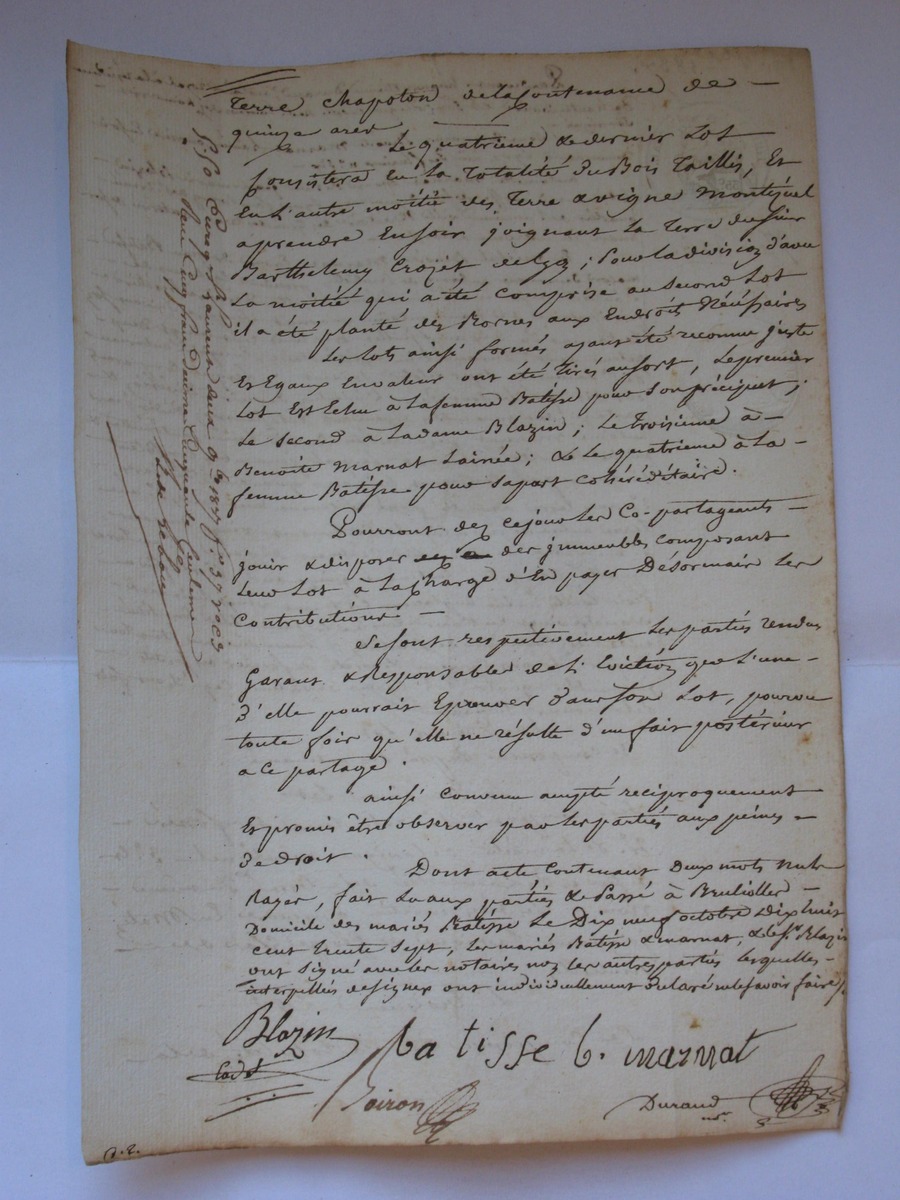 Terre Chapoton de la Contenance de —
quinze ares —
Le quatrieme & dernier Lot
Consistera en la Totalité du Bois Taillis, Et
En L'autre moitié des Terre & vigne Montéquel
aprendre En soir joignant La Terre du sieur
Barthelemy Crozet de Lza ; Pour la division d'avec
La moitié qui a été comprise au second Lot
il a été planté des Bornes aux Endroits Nécéssaires
Les Lots ainsi formés ayant été reconnu juste
Et Egaux En valeur ont été tirés au sort, Le premier
Lot Est Echu à La femme Batisse pour son préciput ;
Le second à La dame Blazin ; Le Troisieme à —
Benoite Marnat Lainée ; & Le quatrieme à La —
femme Batisse pour sa part Cohéréditaire .
Pourront des ce jour Les Co-partageants —
jouir & disposer des immeubles composant
Leur Lot à La Charge d'En payer Désormais Les
Contributions —
Se sont respectivement Les parties rendus
Garant & Responsables de L'Eviction que L'une —
d'elle pourrait Eprouver dans son Lot, pourvu
toute fois qu'elle ne résulte d'un fait postérieur
a ce partage .
ainsi Convenu accepté réciproquement
Et promis être observer par Les parties aux peines —
de droit .
Dont acte Contenant Deux mots Nuls
Rayés, fait Lu aux parties & Passé à
Domicile des mariés Batisse Le Dix neuf octobre Dix huit
cent trente sept, Les mariés Batisse & marnat, & Le Sr Blazin
ont signé avec Les notaires non Les autres parties Lesquelles —
interpellés de signer ont individuellement déclaré ne le savoir faire /.
Blazin
Batisse b. marnat
Cadet
Boiron
Durand
nre
St Laurent 1837 fo 37 recto
Reçu cinq francs décime Cinquante Centimes